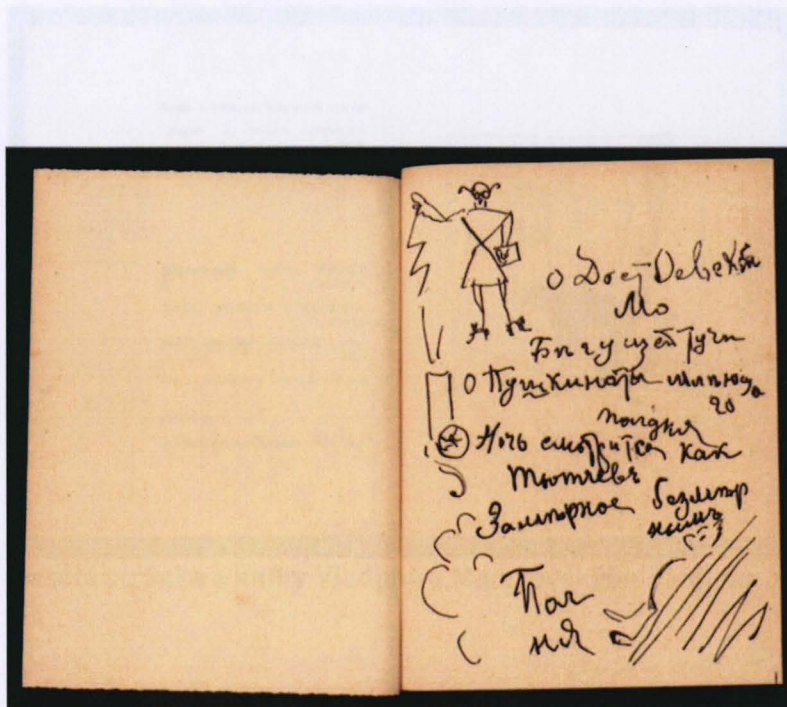 О Достоевскій
Мо
Бѣгущей тучи
О Пушкиноты млѣюща
го
полдня
Ночь смотрится как
Тютчевъ
Замѣрное безмѣр
нымъ
Пол
ня